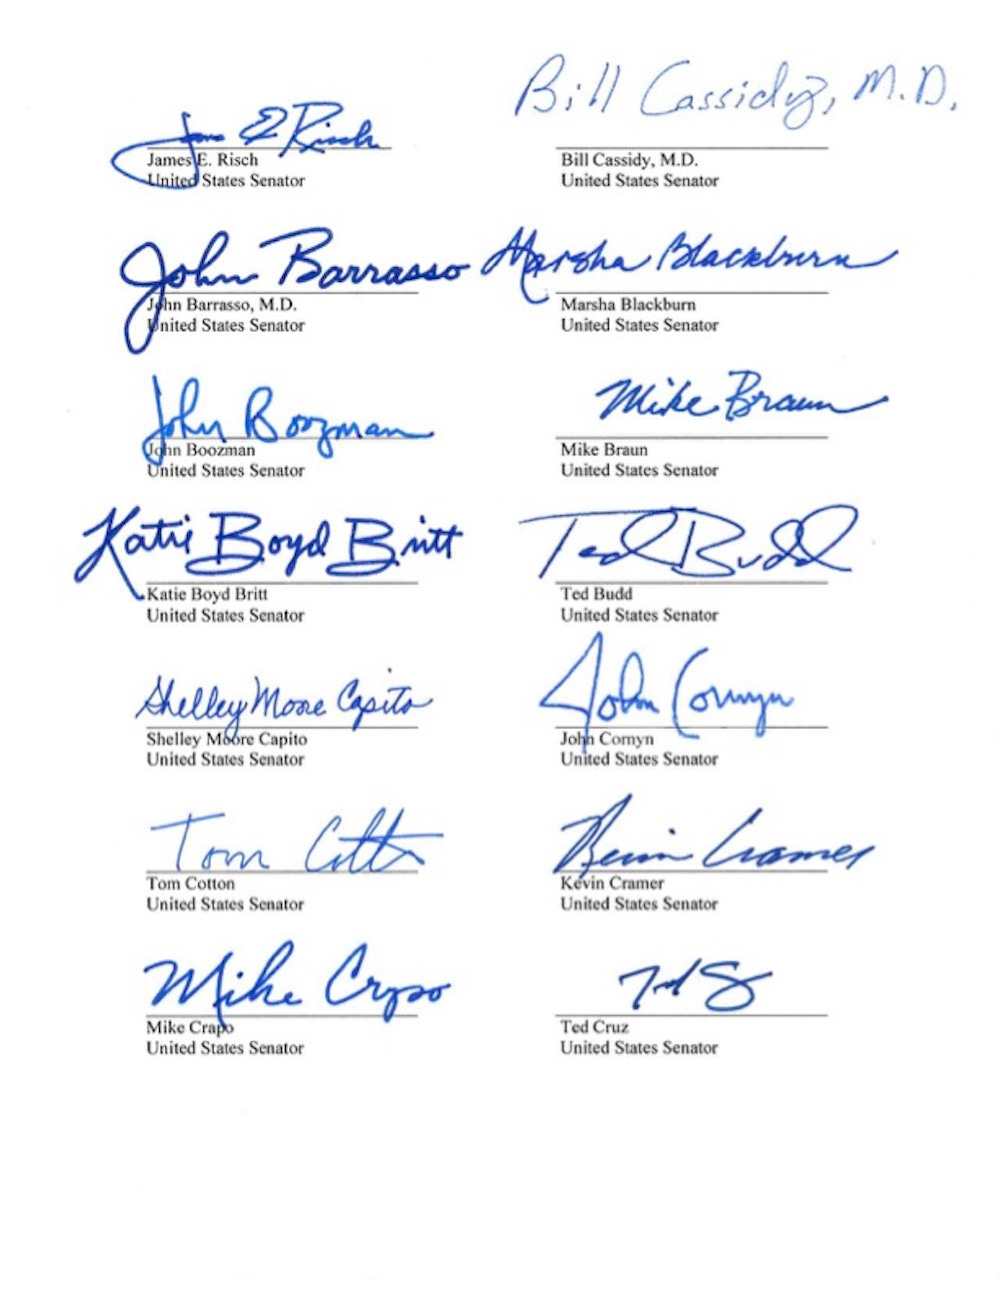 James E Risch
James E. Risch
United States Senator
Bill Cassidy, M.D.
Bill Cassidy, M.D.
United States Senator
John Barrasso
John Barrasso, M.D.
United States Senator
Marsha Blackburn
Marsha Blackburn
United States Senator
John Boozman
John Boozman
United States Senator
Mike Braun
Mike Braun
United States Senator
Katie Boyd Britt
Katie Boyd Britt
United States Senator
Ted Budd
Ted Budd
United States Senator
Shelley Moore Capito
Shelley Moore Capito
United States Senator
John Cornyn
John Cornyn
United States Senator
Tom Cotton
Tom Cotton
United States Senator
Kevin Cramer
Kevin Cramer
United States Senator
Mike Crapo
Mike Crapo
United States Senator
Ted
Ted Cruz
United States Senator